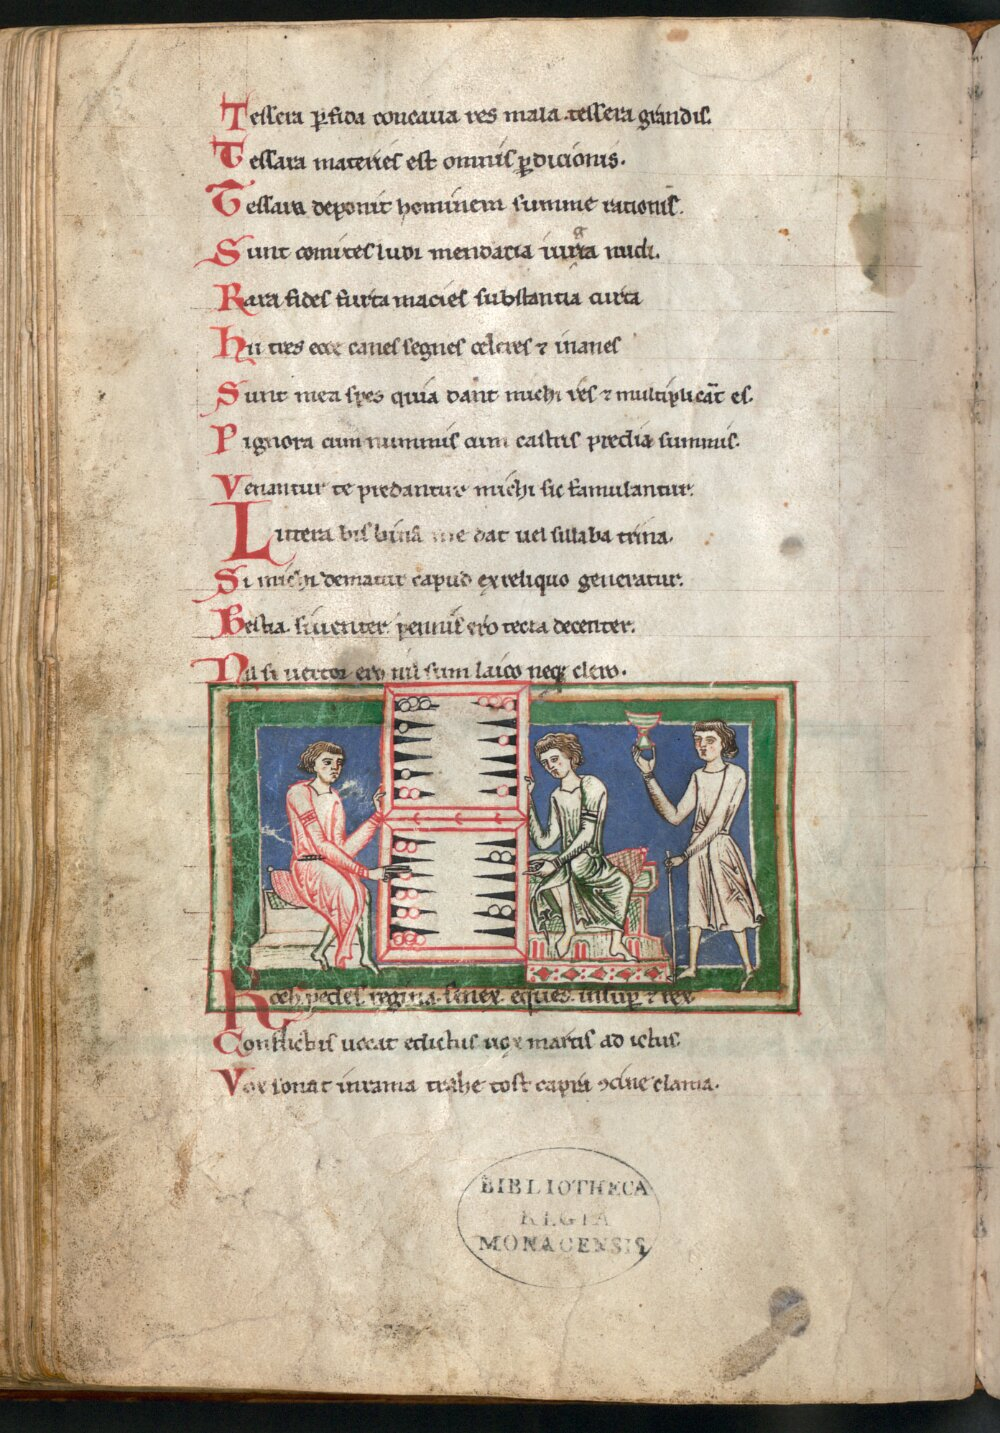 Tessera ꝑfida concaua res mala tessera grandis.
Tessara materies est omnis ꝑdicionis.
Tessara deponit hominem summe rationis.
Sunt comites ludi mendacia iurgia nudi.
Rara fides furta macies substantia curta
Hii tres ecce canes segnes celeres ⁊ inanes
Sunt mea spes quia dant michi res ⁊ multiplicāt es.
Pignora cum nummis cum castris predia summis.
Venantur te predantur michi sic famulantur.
Littera bis bina me dat uel sillaba trina.
Si michi dematur capud ex reliquo generatur.
Bestia. si uenter. pennis ero tecta decenter.
Nil si uertor ero nil sum laico neqꝫ clero.
Roch pedes regina. senex. eques. insuꝑ ⁊ rex
Conflictus uocat edictus uox martis ad ictus.
Vox sonat in rama trahe tost capin ꝯciue clama.
BIBLIOTHECA
REGIA
MONACENSIS